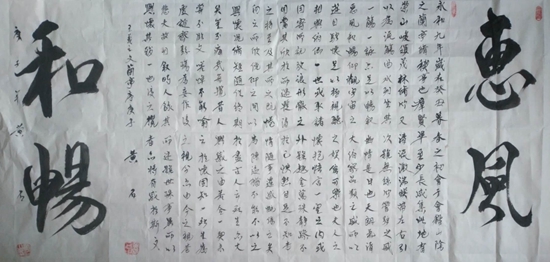 惠風
永和九年歲在癸丑暮春之初會于會稽山陰
之蘭亭脩禊事也群賢畢至少長咸集此地有
崇山峻領茂林脩竹又有清流激湍映帶左右引
以為流觴曲水列坐其次雖無絲竹管弦之盛
一觴一詠亦足以暢叙幽情是日也天朗氣清
惠風和暢仰觀宇宙之大俯察品類之盛所以
遊目騁懷足以極視聽之娛信可樂也夫人之
相與俯仰一世或取諸懷抱悟言一室之內或
因寄所託放浪形骸之外雖趣舍萬殊靜躁不同
當其欣於所遇暫得於己快然自足不知老
之將至及其所之既惓情隨事遷感慨係之矣
向之所欣俛仰之間以為陳迹猶不能不以之
興懷況脩短隨化終期於盡古人云死生亦大
矣豈不痛哉每攬昔人興感之由若合一契未
嘗不臨文嗟悼不能喻之於懷固知一死生為
虛誕齊彭殤為妄作後之視今亦由今之視昔
悲夫故列叙時人錄其所述雖世殊事異所以
興懷其致一也後之攬者亦將有感於斯文
王羲之文蘭亭序庚子 黄石
和暢
庚子年 黄石